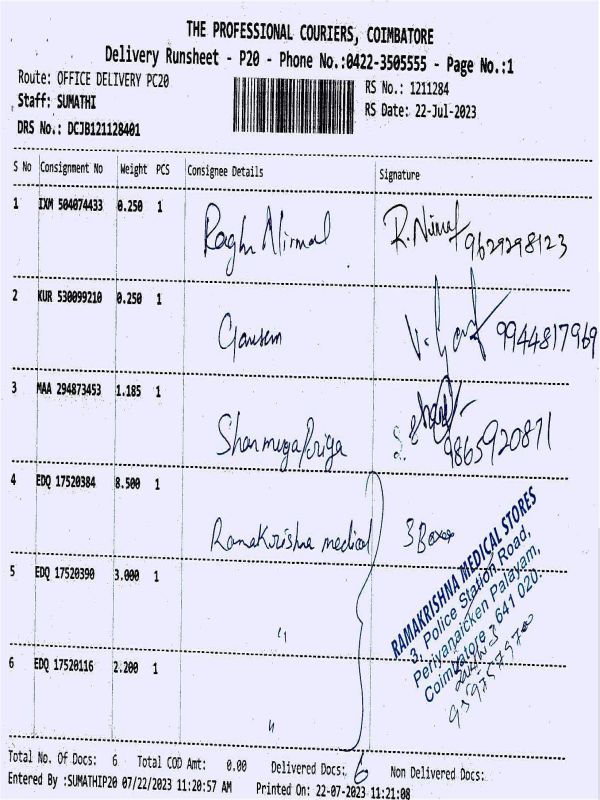 THE PROFESSIONAL COURIERS, COIMBATORE
Delivery Runsheet - P20 - Phone No.:0422-3505555 - Page No.:1
Route: OFFICE DELIVERY PC20
RS No.: 1211284
Staff: SUMATHI
RS Date: 22-Jul-2023
DRS No.: DCJB121128401
S No Consignment No Weight PCS Consignee Details Signature
1 IXM 504074433 0.250 1 Raghu Nirmal R. Nirmal 9629298123
2 KUR 530099210 0.250 1 9944817969
3 MAA 294873453 1.185 1 ShanmugaPriya 9865920871
4 EDQ 17520384 8.500 1 Ramakrishna medical 3 Boxes
5 EDQ 17520390 3.000 1 "
6 EDQ 17520116 2.200 1 "
RAMAKRISHNA MEDICAL STORES
3, Police Station Road,
Periyanaicken Palayam,
Coimbatore - 641 020.
Total No. Of Docs: 6 Total COD Amt: 0.00 Delivered Docs: 6 Non Delivered Docs:
Entered By :SUMATHIP20 07/22/2023 11:20:57 AM Printed On: 22-07-2023 11:21:08